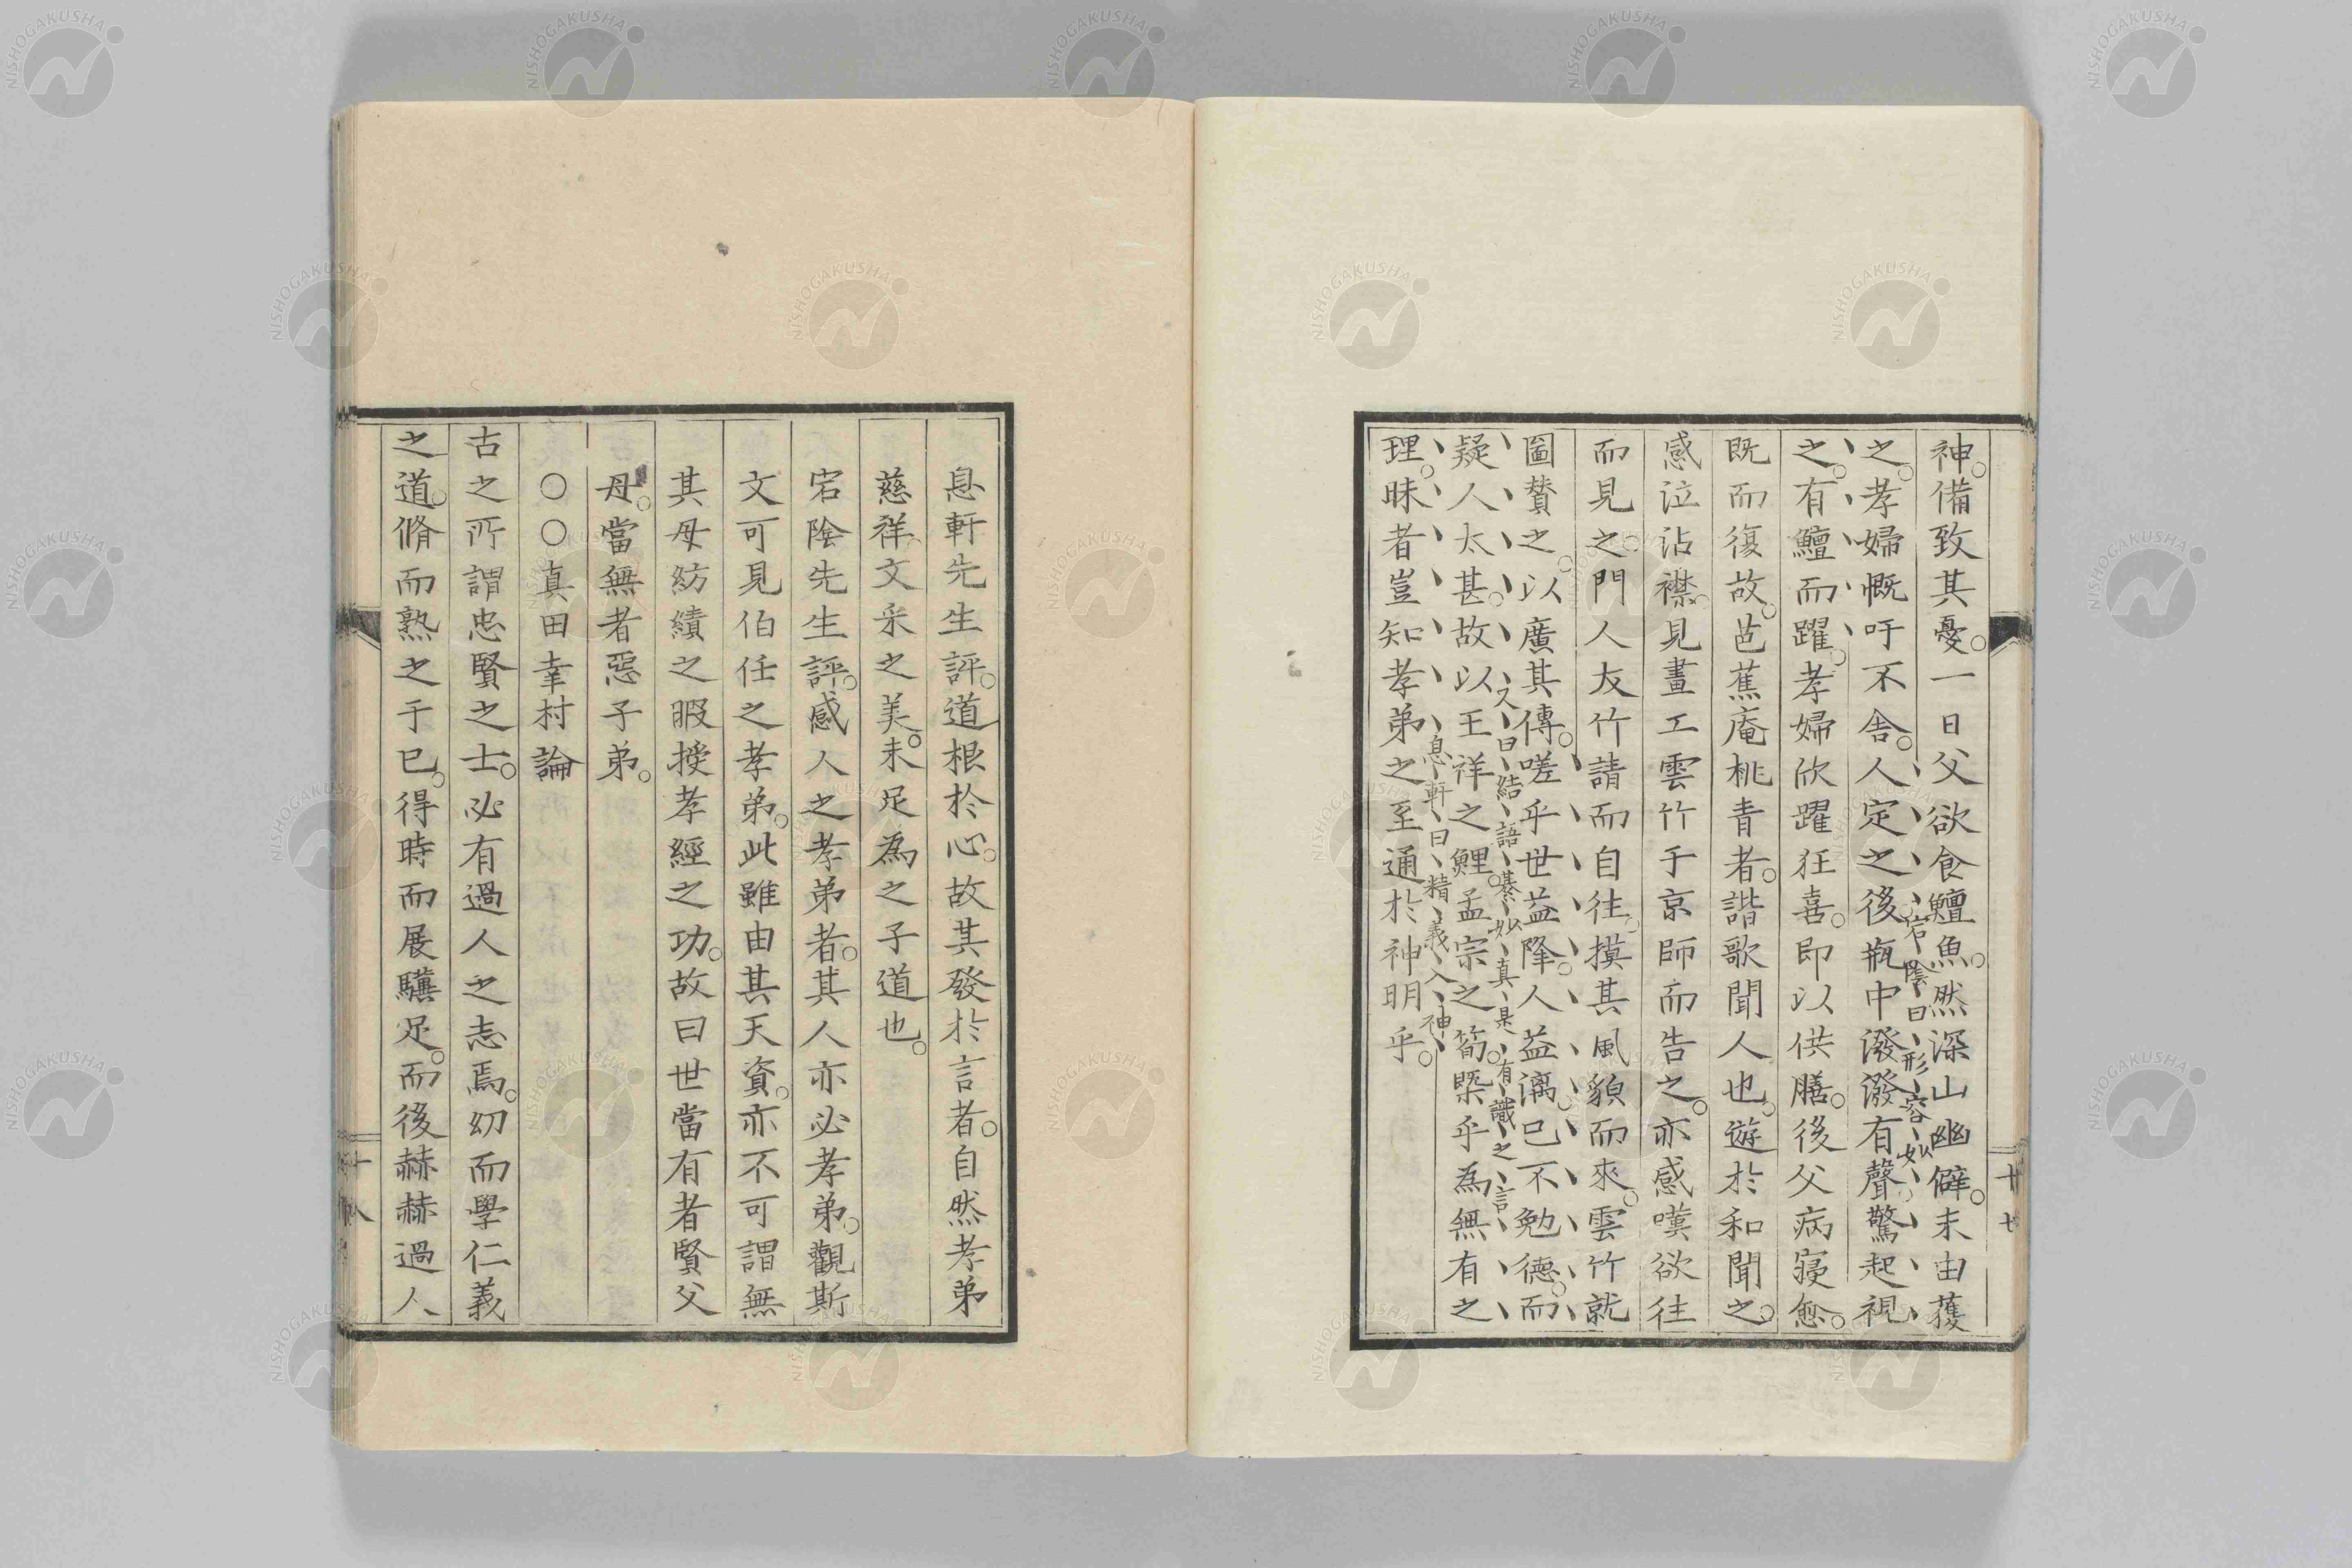 神。備致其憂。一日父欲食鱣魚。然深山幽僻。未由獲
之。孝婦慨吁不舍。人定之後瓶中潑潑有聲。驚起視
宕陰曰形容妙
之。有鱣而躍。孝婦欣躍狂喜。即以供膳。後父病寖愈。
既而復故。芭蕉庵桃青者。諧歌聞人也。遊於和聞之。
感泣沾襟。見畫工雲竹于京師而告之。亦感嘆欲往
而見之。門人友竹請而自往。摸其風貌而來。雲竹就
圖贊之。以廣其傳。嗟乎世益降。人益漓。已不勉德。而
又曰結語綦妙真是有識之言
疑人太甚。故以王祥之鯉。孟宗之筍。槩乎為無有之
息軒曰精義入神
理。昧者豈知孝弟之至通於神明乎。
十七
息軒先生評。道根於心。故其發於言者。自然孝弟
慈祥。文采之美。未足為之子道也。
宕陰先生評。感人之孝弟者。其人亦必孝弟。觀斯
文可見伯任之孝弟。此雖由其天資。亦不可謂無
其母紡績之暇授孝經之功。故曰世當有者賢父
母。當無者惡子弟。
○○真田幸村論
古之所謂忠賢之士。必有過人之志焉。幼而學仁義
之道。脩而熟之于已。得時而展驥足。而後赫赫過人
十八
NISHOGAKUSHA